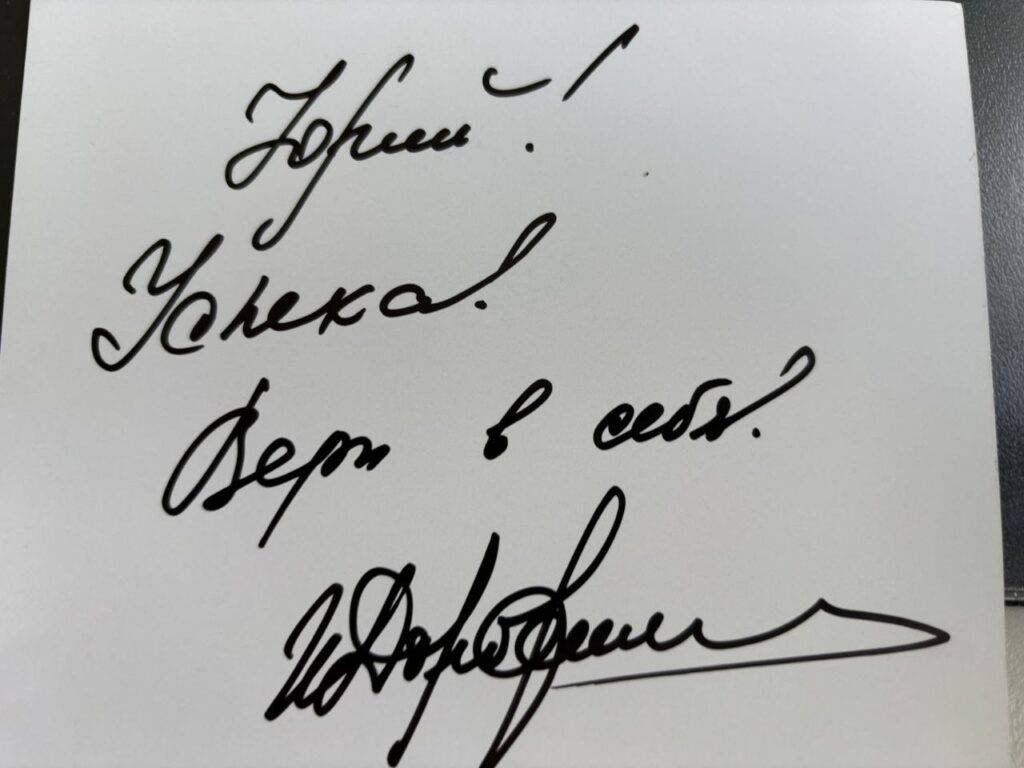 Юрий!
Успеха!
Верь в себя!